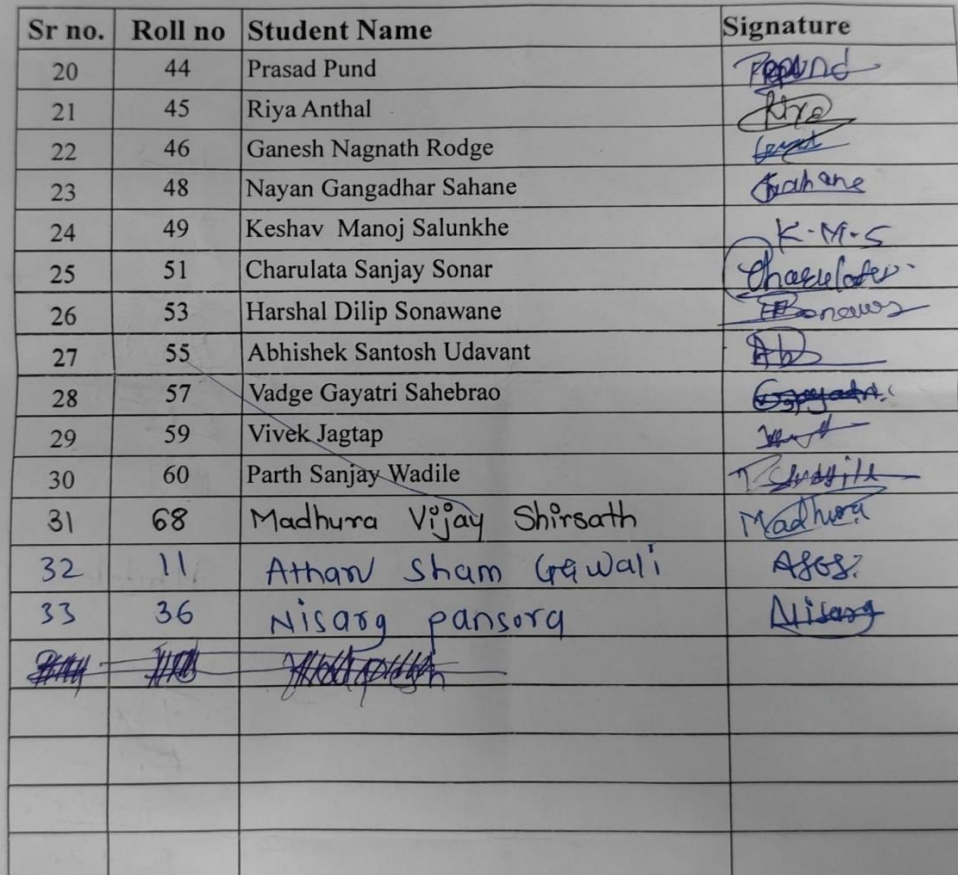 Sr no. Roll no Student Name Signature
20 44 Prasad Pund
21 45 Riya Anthal Riya
22 46 Ganesh Nagnath Rodge
23 48 Nayan Gangadhar Sahane Sahane
24 49 Keshav Manoj Salunkhe K-M-S
25 51 Charulata Sanjay Sonar
26 53 Harshal Dilip Sonawane
27 55 Abhishek Santosh Udavant
28 57 Vadge Gayatri Sahebrao Gayatri
29 59 Vivek Jagtap
30 60 Parth Sanjay Wadile
31 68 Madhura Vijay Shirsath Madhura
32 11 Atharv Sham Gawali
33 36 Nisarg pansora Nisarg